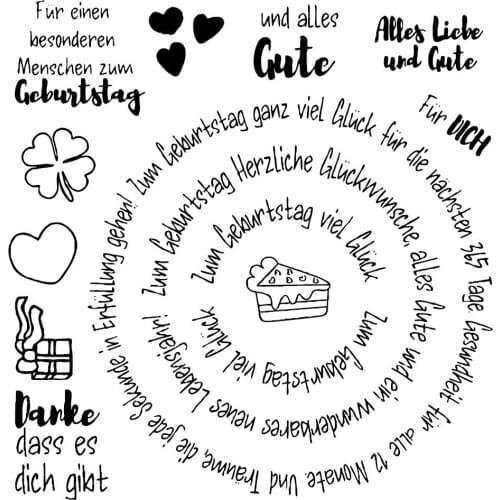 Für einen
besonderen
Menschen zum
Geburtstag
und alles
Gute
Alles Liebe
und Gute
Für DICH
Zum Geburtstag ganz viel Glück für die nächsten 365 Tage. Gesundheit für alle 12 Monate. Und Träume, die jede Sekunde in Erfüllung gehen!
Zum Geburtstag Herzliche Glückwünsche, alles Gute und ein wunderbares neues Lebensjahr!
Zum Geburtstag viel Glück
Zum Geburtstag viel Glück
Danke
dass es
dich gibt